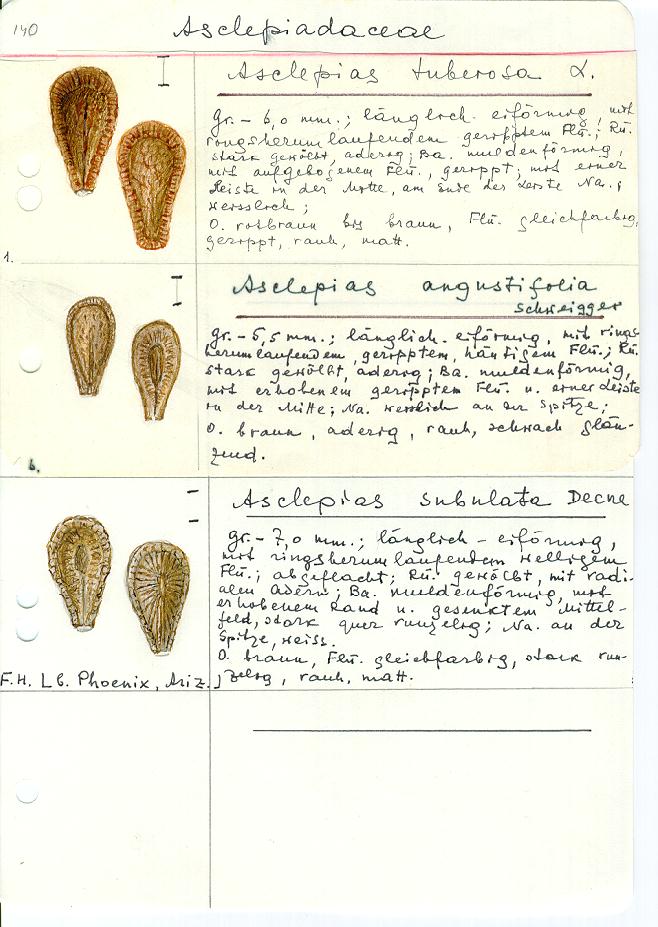 140
Asclepiadaceae
Asclepias tuberosa L.
gr. - 6,0 mm.; länglich. eiförmig, mit
ringsherumlaufendem geripptem Flü.; Rü.
stark gewölbt, aderig; Ba. muldenförmig,
mit aufgebogenem Flü., gerippt; mit einer
Leiste in der Mitte, am Ende der Leiste Na.,
weisslich;
O. rotbraun bis braun, Flü. gleichfarbig,
gerippt, rauh, matt.
1.
Asclepias angustifolia
Schweigger
gr. - 5,5 mm.; länglich. eiförmig, mit rings-
herumlaufendem, geripptem, häutigem Flü.; Rü.
stark gewölbt, aderig; Ba. muldenförmig,
mit erhobenem geripptem Flü. u. einer Leiste
in der Mitte; Na. weisslich an der Spitze;
O. braun, aderig, rauh, schwach glän-
zend.
6.
Asclepias subulata Decne
gr. - 7,0 mm.; länglich - eiförmig,
mit ringsherumlaufendem welligem
Flü.; abgeflacht; Rü. gewölbt, mit radi-
alen Adern; Ba. muldenförmig, mit
erhobenem Rand u. gesenktem Mittel-
feld, stark quer runzelig; Na. an der
Spitze, weiss.
O. braun, Flü. gleichfarbig, stark run-
zelig, rauh, matt.
F.H. LB. Phoenix, Ariz.